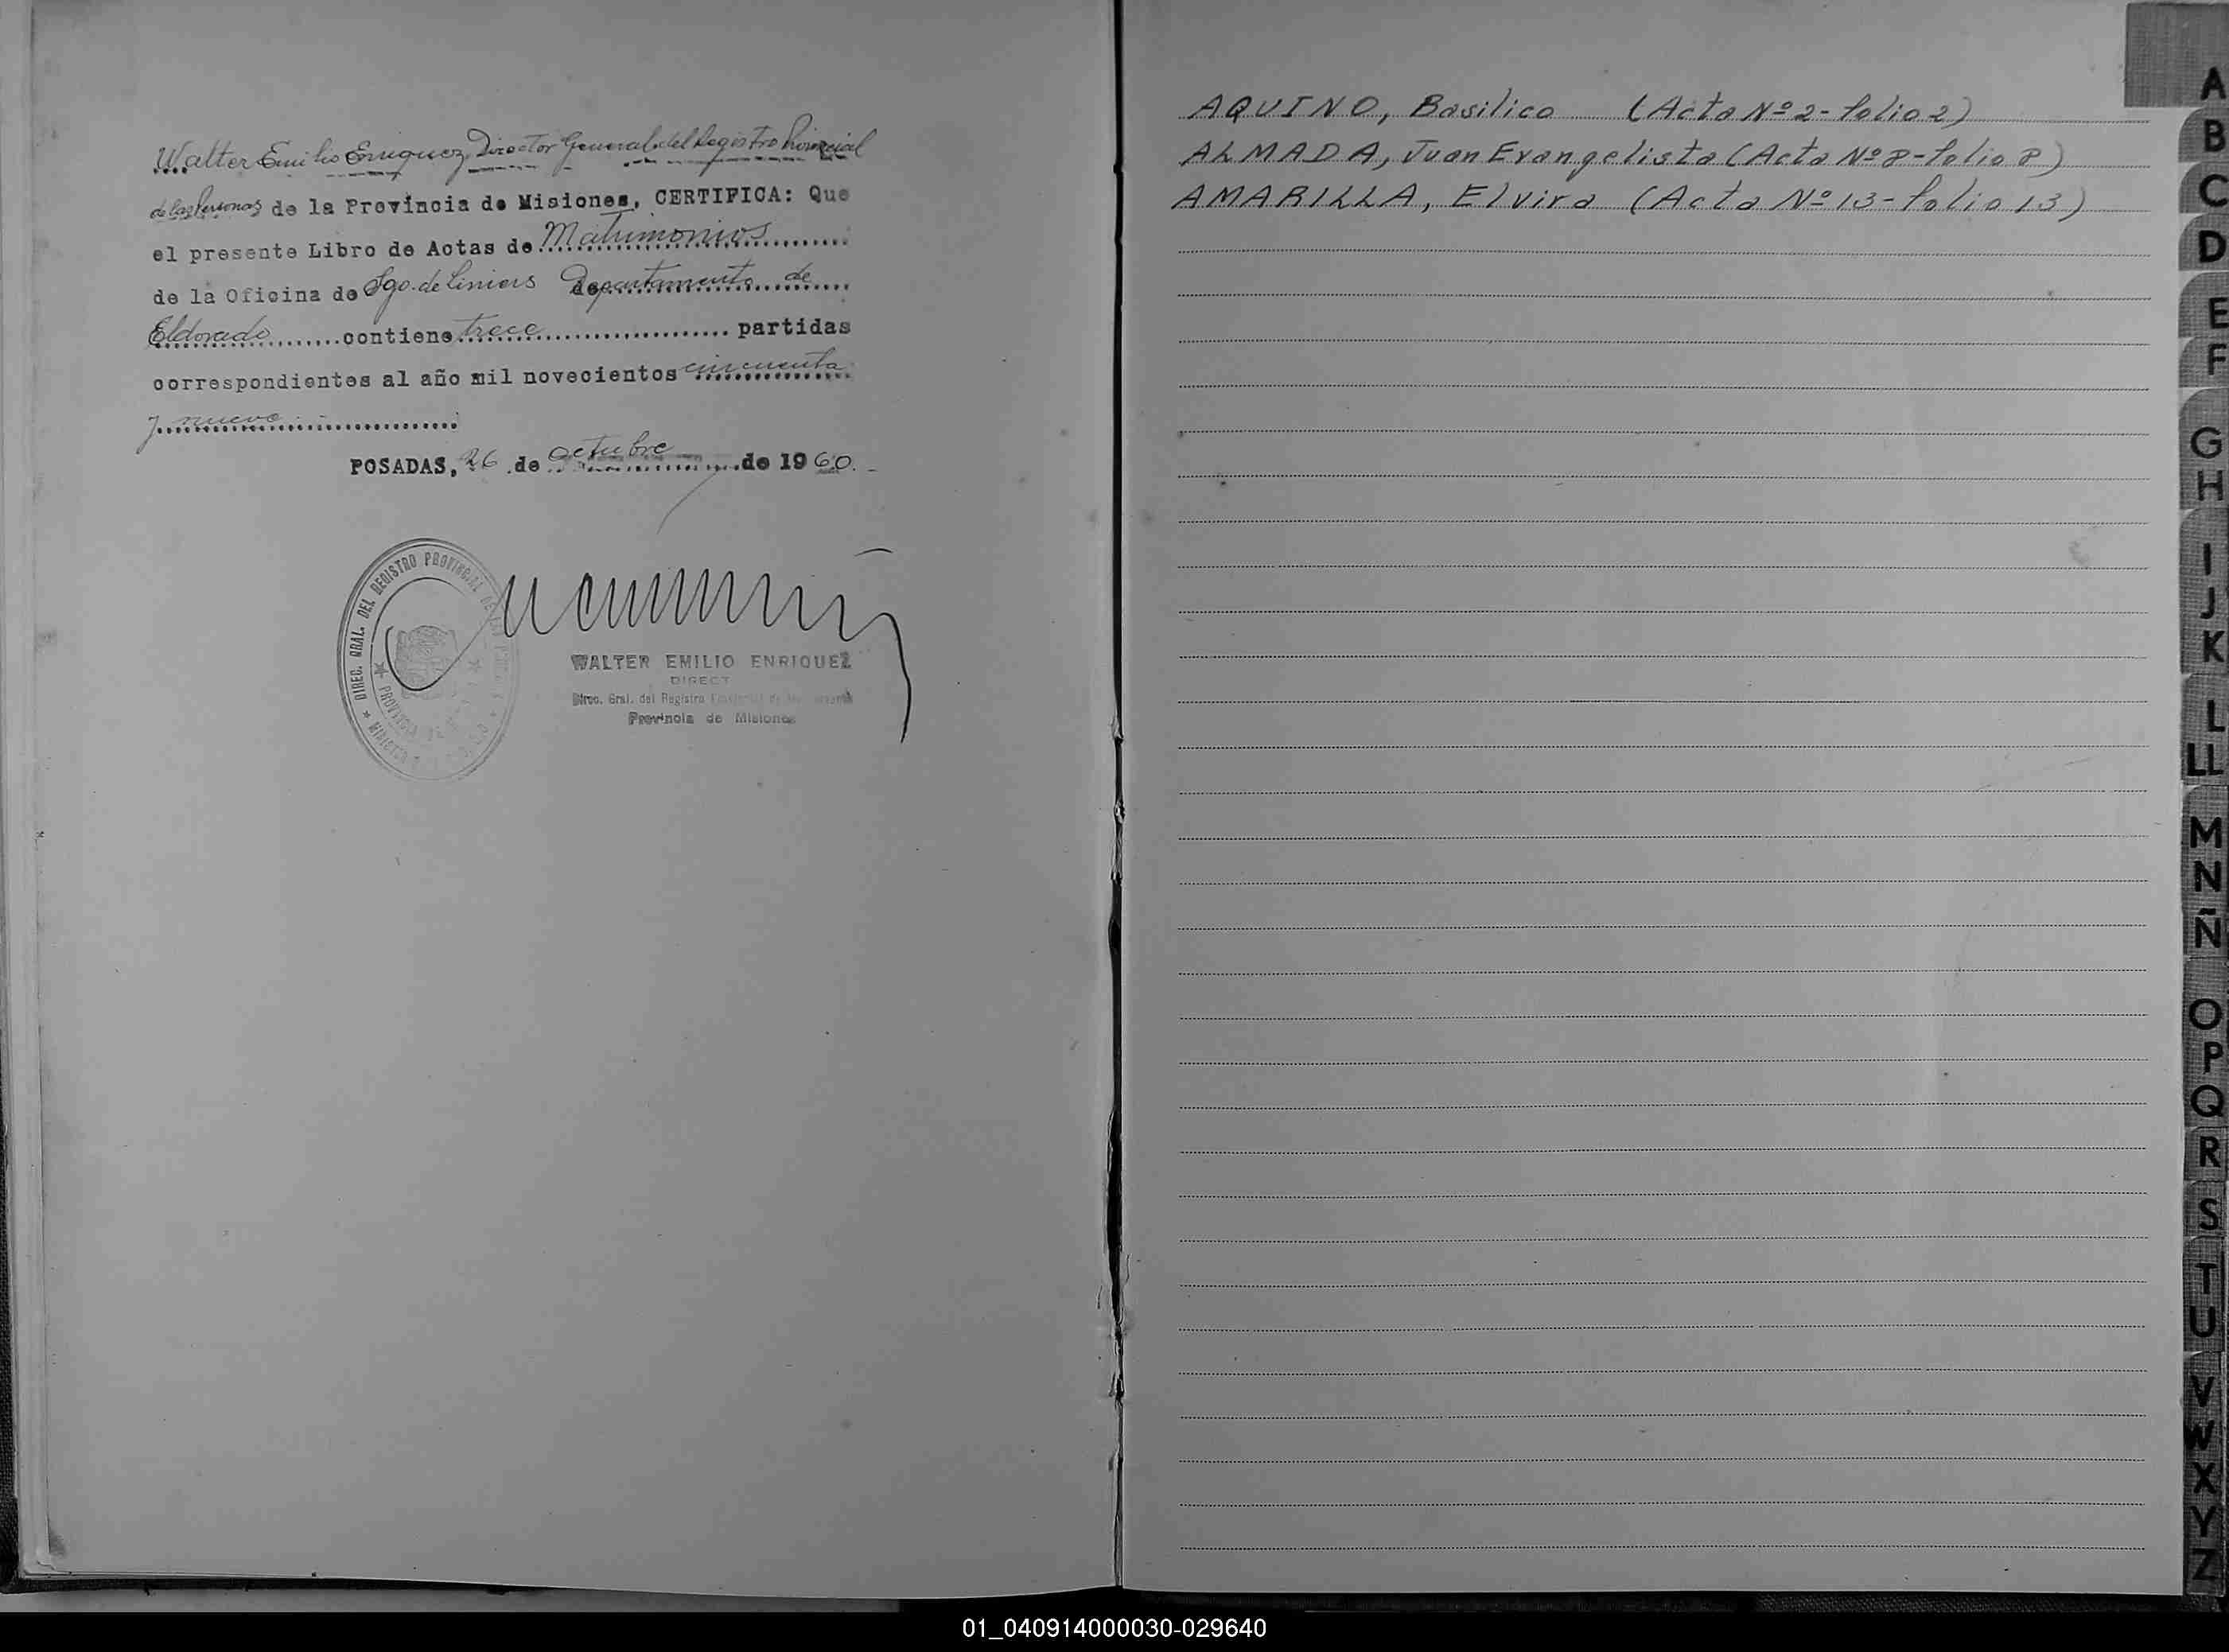 Walter Emilio Enriquez, Director General del Registro Provincial
de las Personas de la Provincia de Misiones, CERTIFICA: Que
el presente Libro de Actas de Matrimonios
de la Oficina de Sgo. de Liniers Departamento de
Eldorado contiene trece partidas
correspondientes al año mil novecientos cincuenta
y nueve
POSADAS, 26 de octubre de 1960.-
DIREC. GRAL. DEL REGISTRO PROVINCIAL DE
PROVINCIA DE
WALTER EMILIO ENRIQUEZ
DIRECT
Direc. Gral. del Registro
Provincia de Misiones
AQUINO, Basilica (Acta Nº 2- folio 2)
ALMADA, Juan Evangelista (Acta Nº 8- folio 8)
AMARILLA, Elvira (Acta Nº 13- folio 13)
A
B
C
D
E
F
G
H
I
J
K
L
LL
M
N
Ñ
O
P
Q
R
S
T
U
V
W
X
Y
Z
01_040914000030-029640